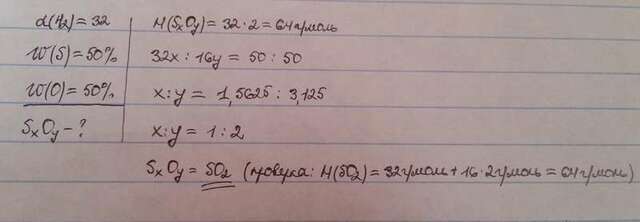 d(H₂)=32
W(S)=50%
W(O)=50%
SₓOᵧ-?
M(SₓOᵧ)=32·2=64г/моль
32x : 16y = 50 : 50
x:y = 1,5625 : 3,125
x:y = 1:2
SₓOᵧ = SO₂ (проверка: M(SO₂)=32г/моль+16·2г/моль=64г/моль)